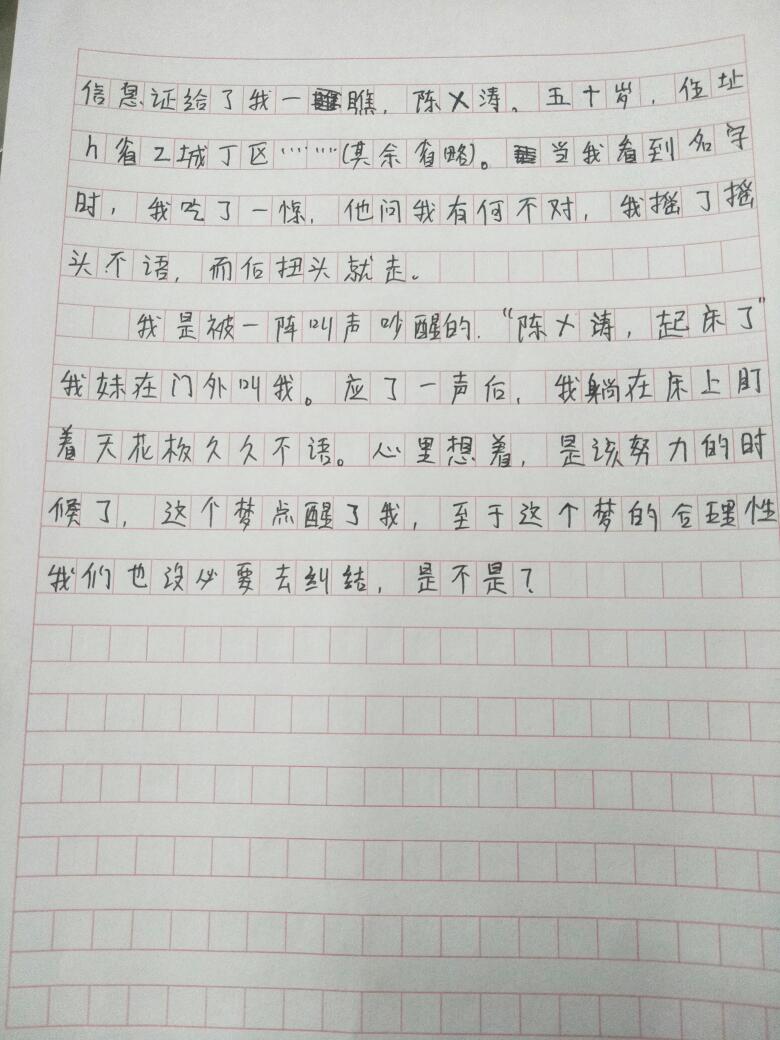 信息证给了我一瞧，陈X涛。五十岁，住址
h省Z城丁区……(其余省略)。当我看到名字
时，我吃了一惊，他问我有何不对，我摇了摇
头不语，而后扭头就走。
我是被一阵叫声吵醒的.“陈X涛，起床了”
我妹在门外叫我。应了一声后，我躺在床上盯
着天花板久久不语。心里想着，是该努力的时
候了，这个梦点醒了我，至于这个梦的合理性
我们也没必要去纠结，是不是？